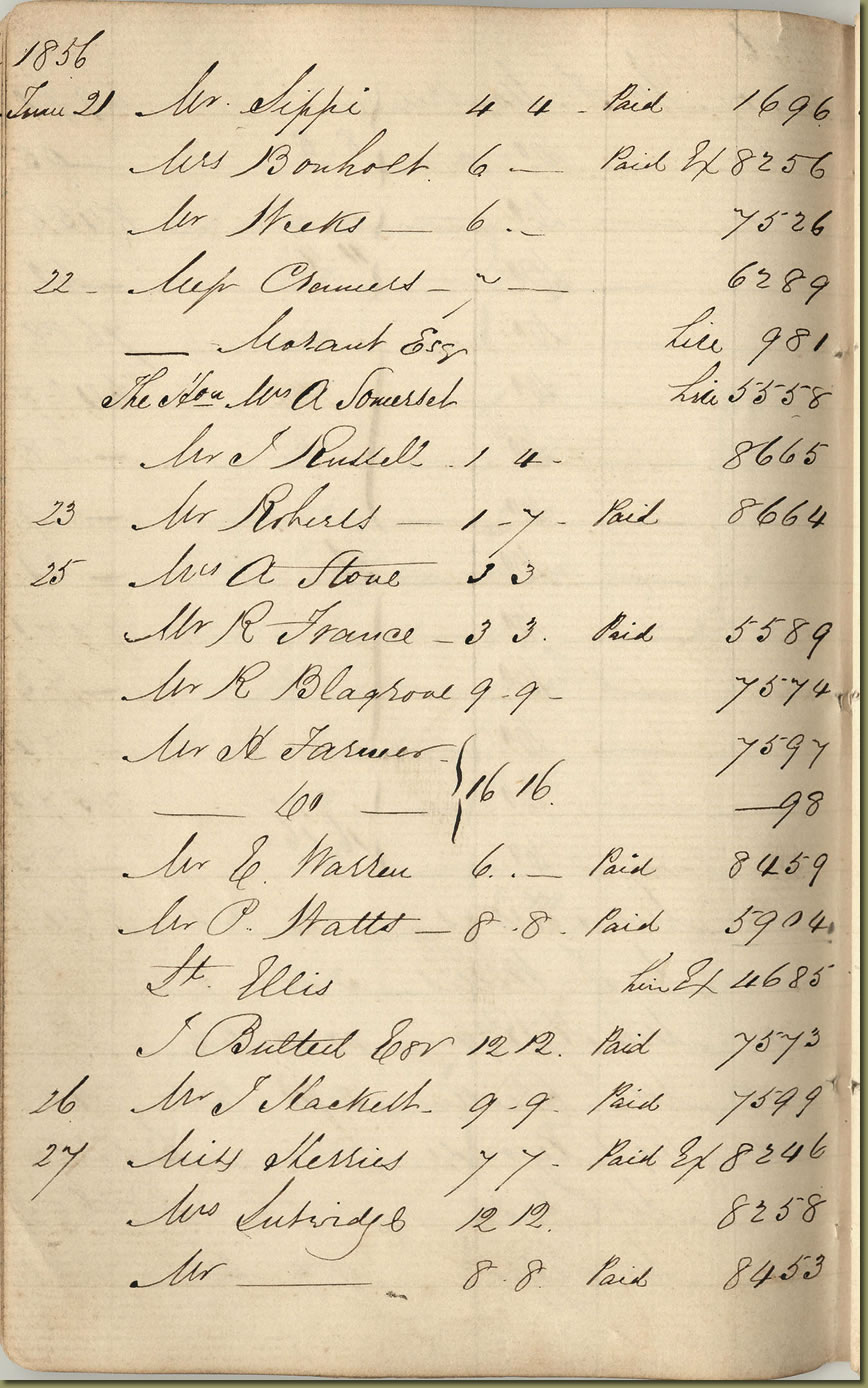 1856
June 21 Mr. Sippi 4 4 - Paid 1696
Mrs Bonholt. 6 — Paid Ex 8256
Mr Weeks — 6 . — 7526
22 - Messrs Cramers — 7 — 6289
— Morant Esqr Hire 981
The Hon Mrs A Somerset Hire 5558
Mr J Russell . 1 4 - 8665
23 Mr Roberts — 1 - 7 - Paid 8664
25 Mrs A Stone 3 3
Mr R France — 3 3. Paid 5589
Mr R Blagrove 9 - 9 - 7574
Mr H Farmer 7597
— Do — 16 16. — 98
Mr E. Warren 6. . — Paid 8459
Mr P. Watts — 8 . 8 . Paid 5904
Lt. Ellis Hire Ex 4685
J Bulteel Esqr 12 12. Paid 7573
26 Mr J Hackett - 9 - 9. Paid 7599
27 Miss Herries 7 7 - Paid Ex 8246
Mrs Lutwidge 12 12. 8258
Mr — 8 . 8. Paid 8453